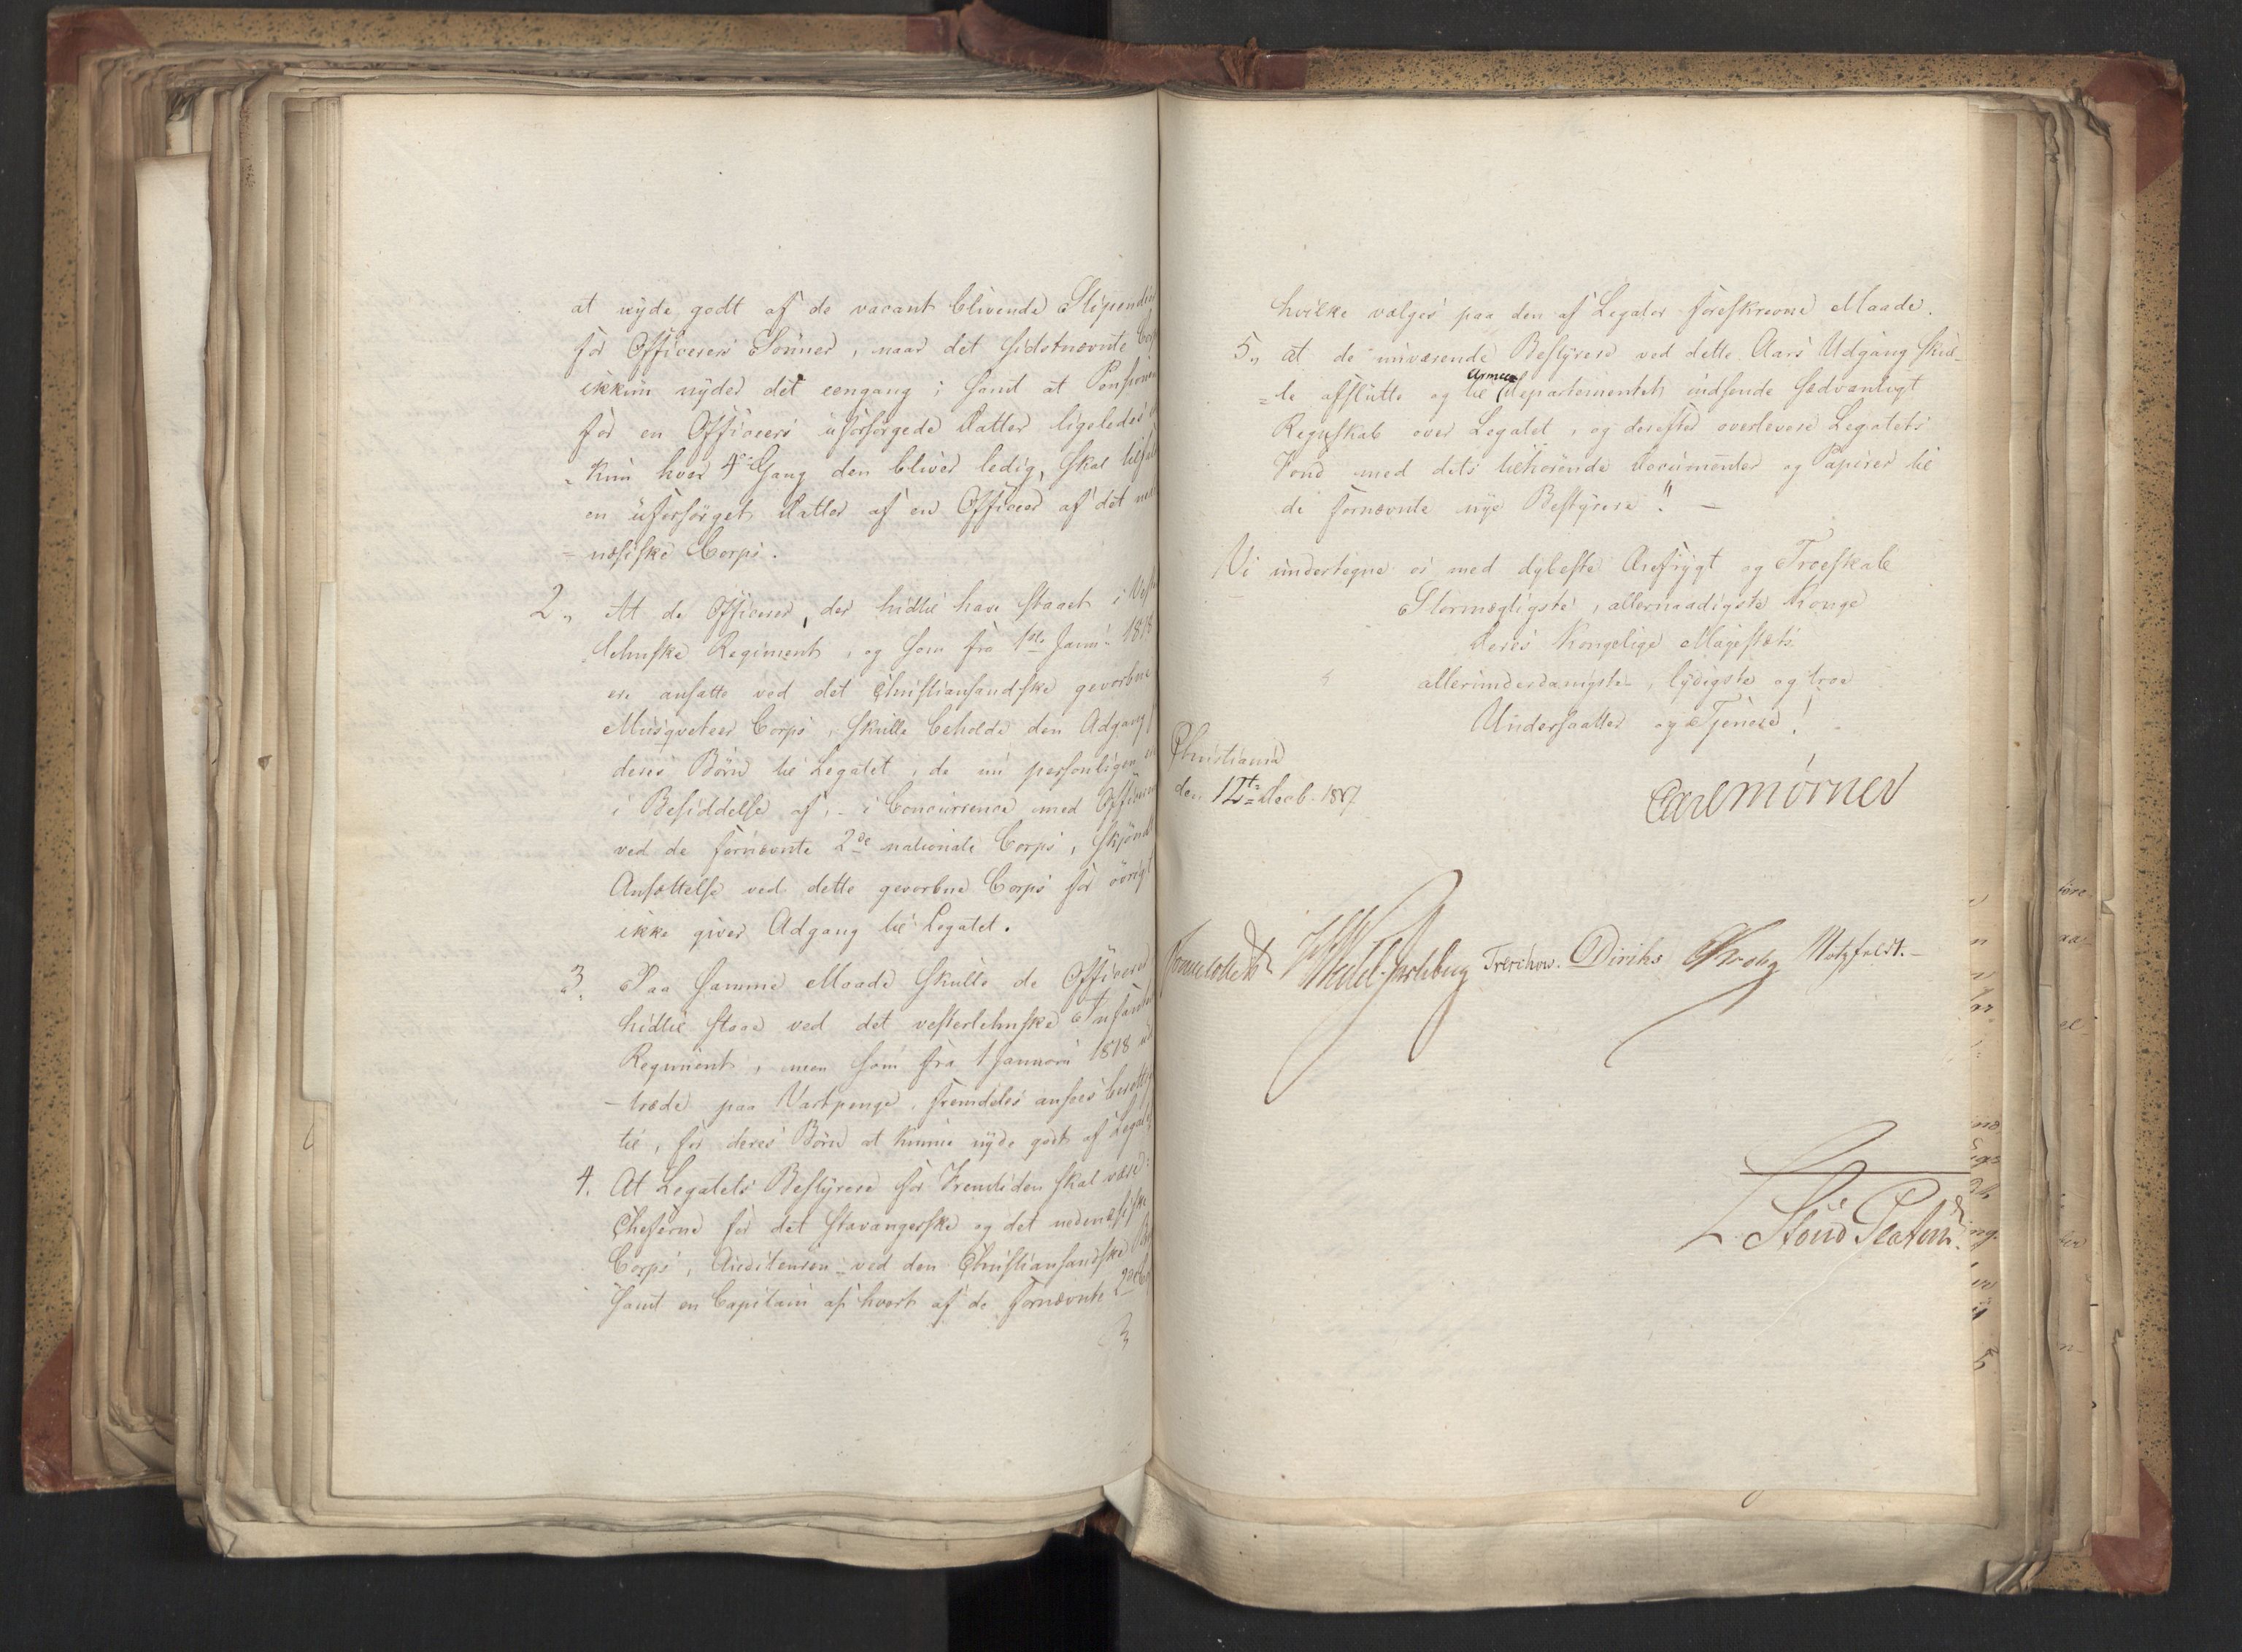 at nyde godt af de vacant blivende Stipendier
for Officerers Sönner, naar det sidstnævnte Corps
ikkun nyder det eengang; samt at Pensionen
for en Officers uforsörgede Datter ligeledes
kun hver 4de Gang den bliver ledig, skal tilfalde
en uforsörget Datter af en Officer af det ned-
-næsiske Corps.
2., At de Officerer, der hidtil have staaet i Vester
lehnske Regiment, og som fra 1ste Janu: 1818
ere ansatte ved det Christiansandske gevorbne
Musqveteer Corps, skulle beholde den Adgang for
deres Börn til Legatet, de nu personligen ere
i Besiddelse af, - i Concurrence med Officerer
ved de fornævnte 2de nationale Corps, skjöndt
Ansættelse ved dette gevorbne Corps for övrigt
ikke giver Adgang til Legatet.
3. Paa samme Maade skulle de Officerer
hidtil staae ved det vesterlehnske Infanterie
Regiment, men som fra 1 Januari 1818 ud
-træde paa Vartpenge, fremdeles ansees berettig
til, for deres Börn at kunne nyde godt af Legatet
4. At Legatets Bestyrere for Fremtiden skal være:
Cheferne for det Stavangerske og det nedenæsiske
Corps, Auditeuren ved den Christiansandske
samt en Capitain af hvert af de fornævnte 2de
hvilke vælges paa den af Legator foreskrevne Maade.
5., at de nuværende Bestyrere ved dette Aars Udgang skul-
=le afslutte og til Armee Departementet indsende sædvanligt
Regnskab over Legatet, og derefter overlevere Legatets
Fond med dets tilhörende Documenter og Papirer til
de fornævnte nye Bestyrere"! -
Vi undertegne os med dybeste Ærefrygt og Troeskab
Stormægtigste, allernaadigste Konge
Deres Kongelige Majestæts
allerunderdanigste, lydigste og troe
Undersaatter og Tjenere!
Christiania
den 12te Decb. 1817
Carl Mörner
Sommerhielm Wedel-Jarlsberg Treschow. Diriks Krohg Motzfeldt.-